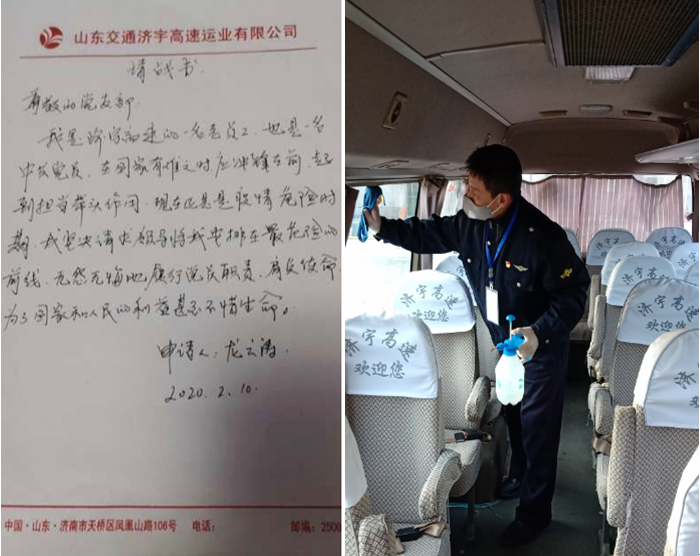 山东交通济宇高速运业有限公司
请战书
尊敬的党支部
我是济宇高速的一名老员工、也是一名
中共党员,在国家有难之时应冲锋在前,起
到担当带头作用,现在正是是疫情危险时
期,我坚决请求领导将我安排在最危险的
前线,无怨无悔地履行党员职责,肩负使命
为了国家和人民的利益甚至不惜生命。
申请人:龙云涛
2020.2.10.
中国·山东·济南市天桥区凤凰山路106号 电话: 邮编:2500
济宇高速
欢迎您
济宇高速
欢迎您
济宇高速
欢迎您